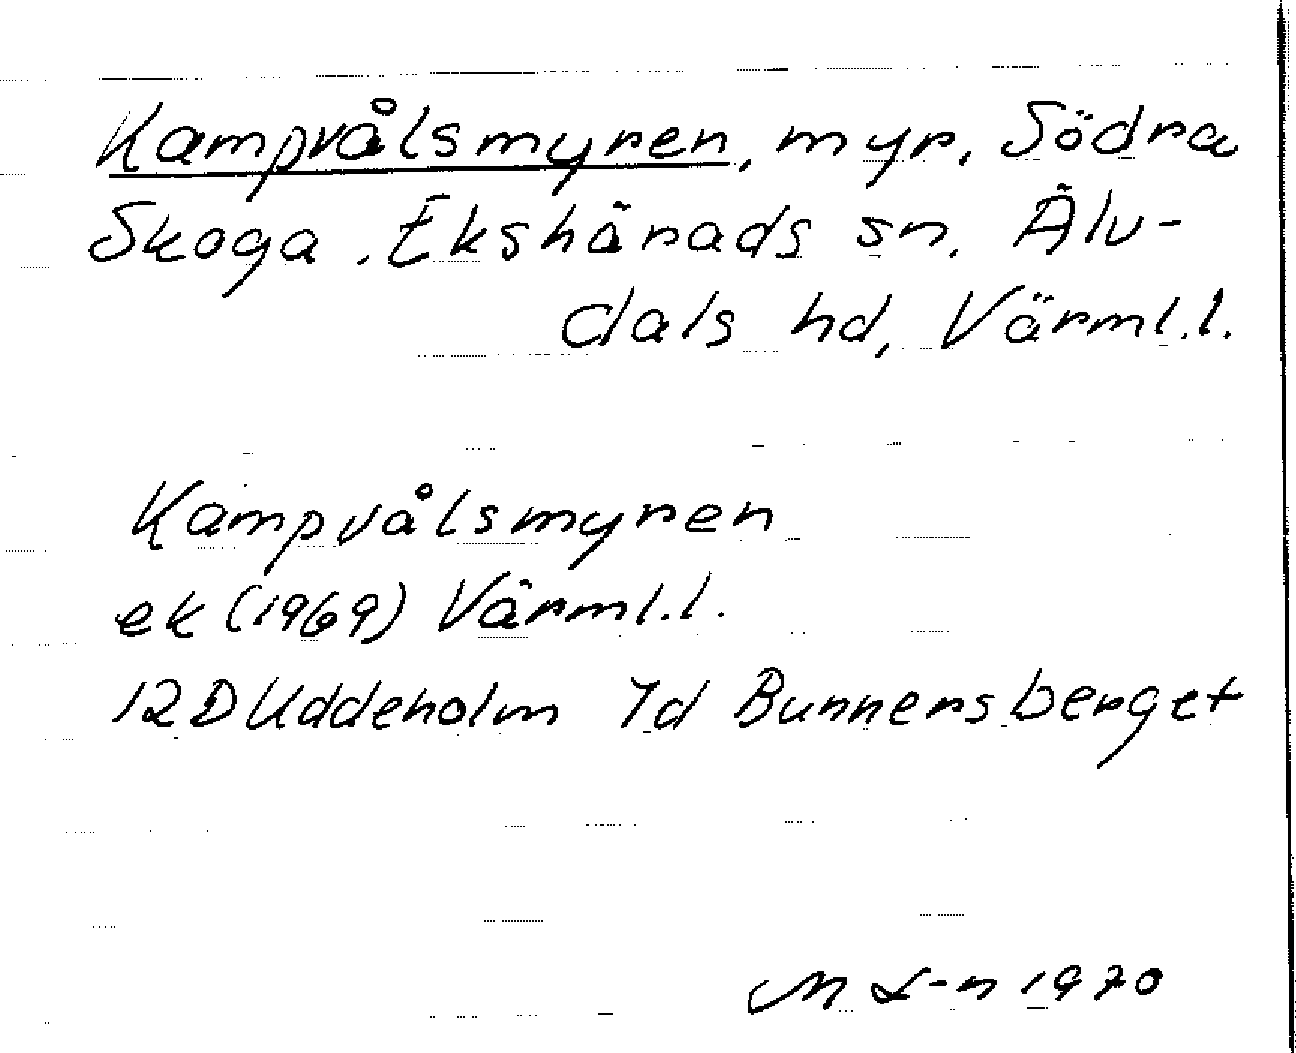 Kampvålsmyren, myr, Södra
Skoga. Ekshärads sn. Älv-
dals hd, Värml.l.
Kampvålsmyren
ek (1969) Värml.l.
12D Uddeholm 7d Bunnersberget
M L-n 1970